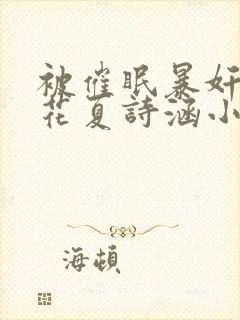 被催眠暴奸
花夏詩涵小
海頓